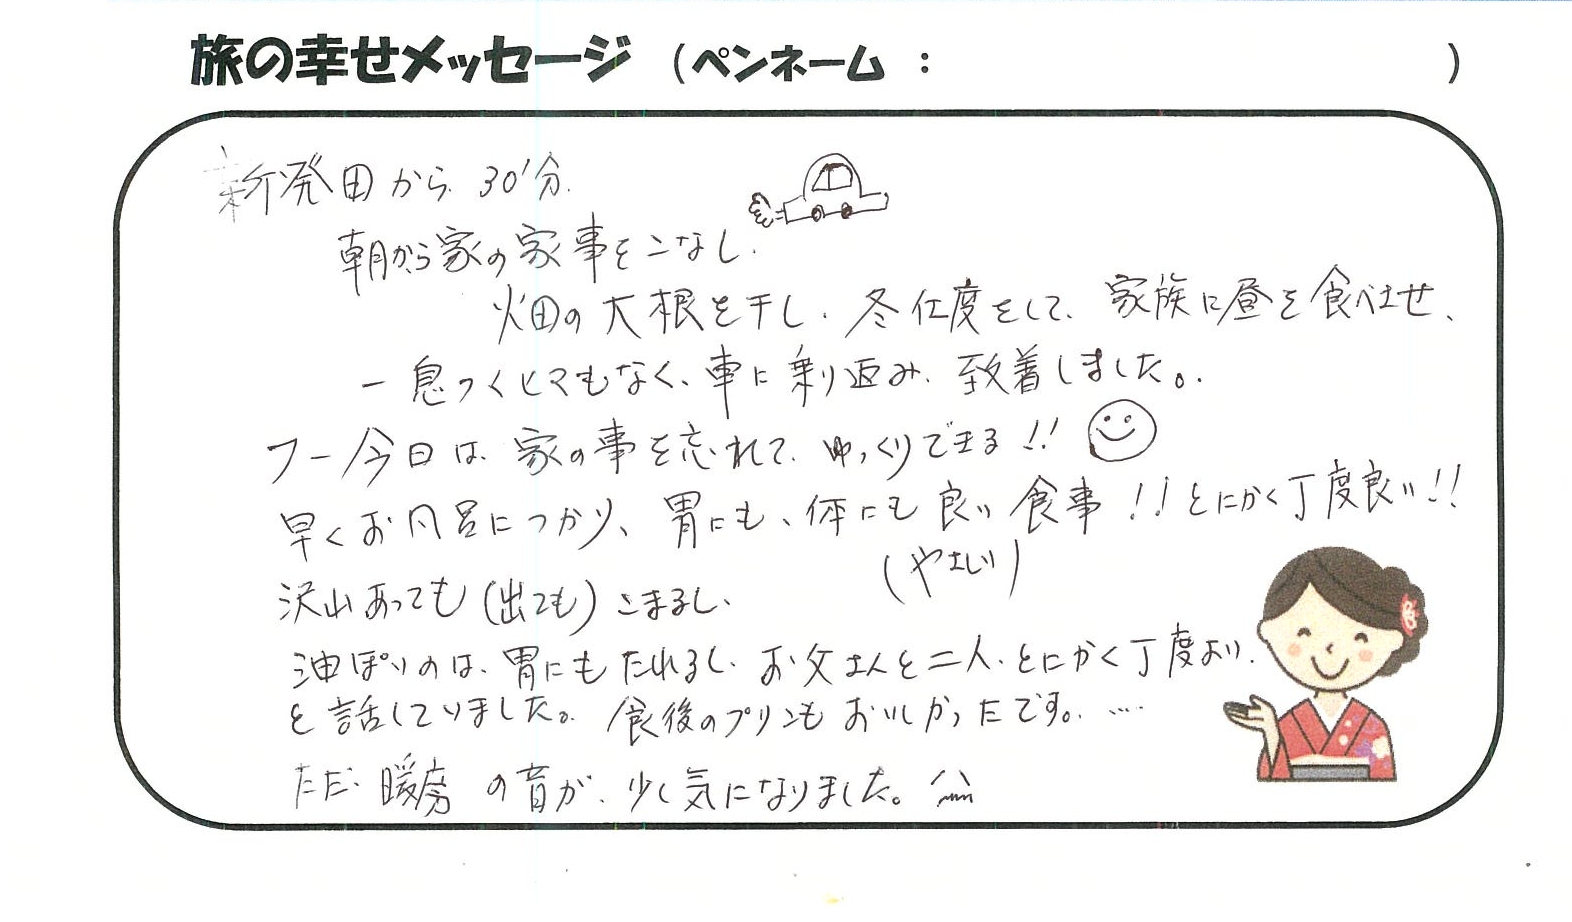 旅の幸せメッセージ (ペンネーム : )
新発田から 30'分.
朝から家の家事をこなし.
畑の大根を干し. 冬仕度をして、家族に昼を食べませ、
一息つくヒマもなく、車に乗り込み、到着しました。.
フー今日は、家の事を忘れて、ゆっくりできる!!
早くお風呂につかり、胃にも、体にも良い食事!!とにかく丁度良い!!
(やさしい)
沢山あっても(出ても)こまるし、
油ぽいのは、胃にもたれるし、お父さんと二人、とにかく丁度より.
と話していました。食後のプリンもおいしかったです。.…
ただ、暖房の音が、少し気になりました。